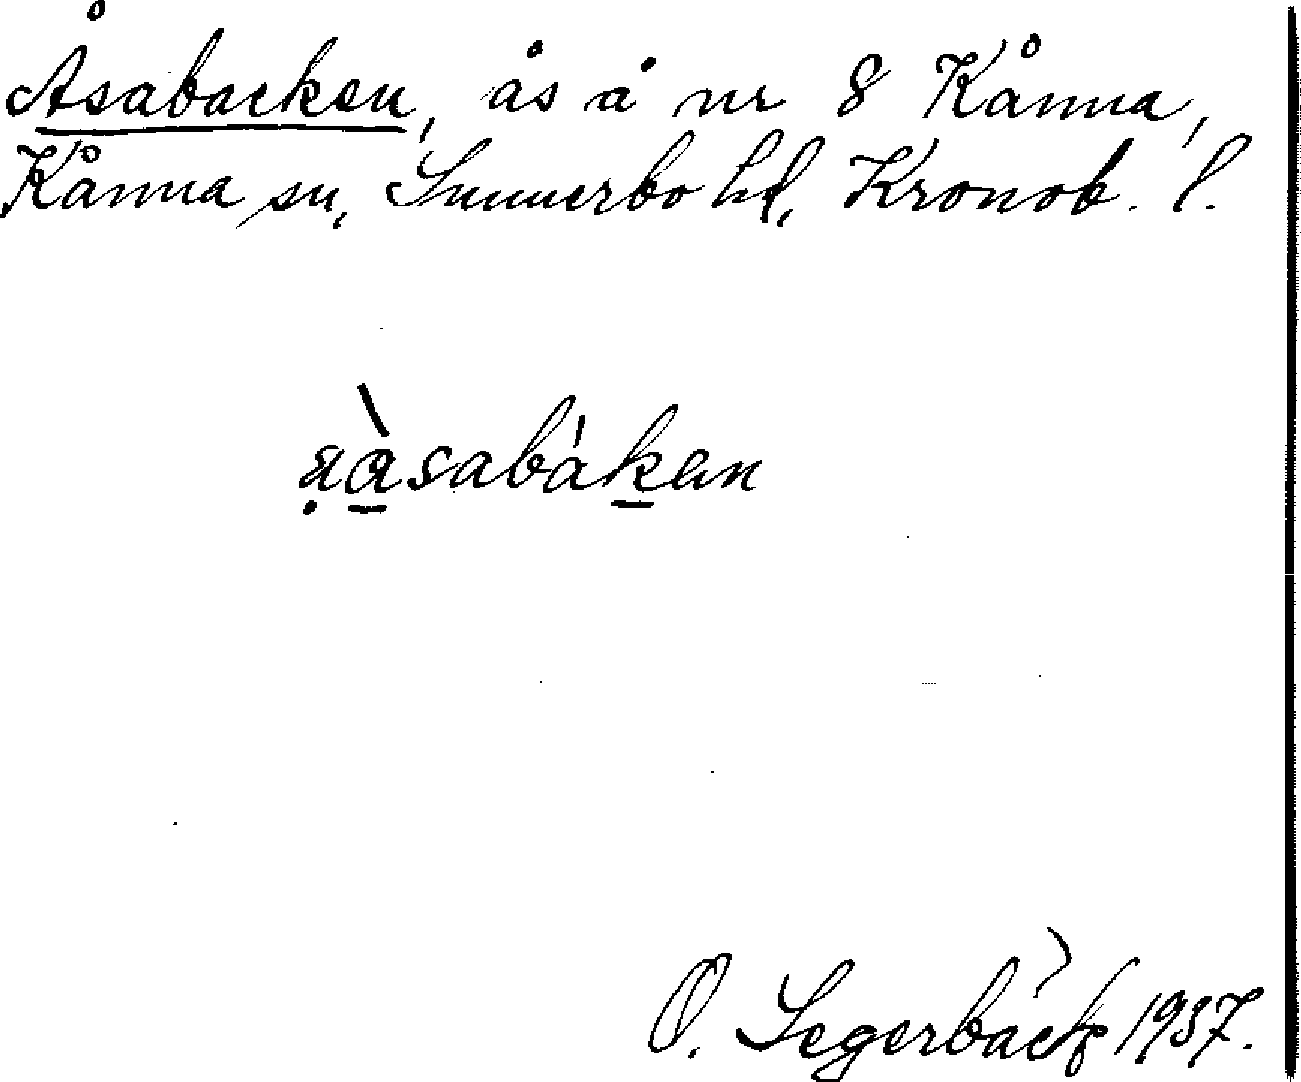 Åsabacken, ås å nr 8 Kånna,
Kånna sn, Sunnerbo hd, Kronob. l.
O. Segerbäck 1937.